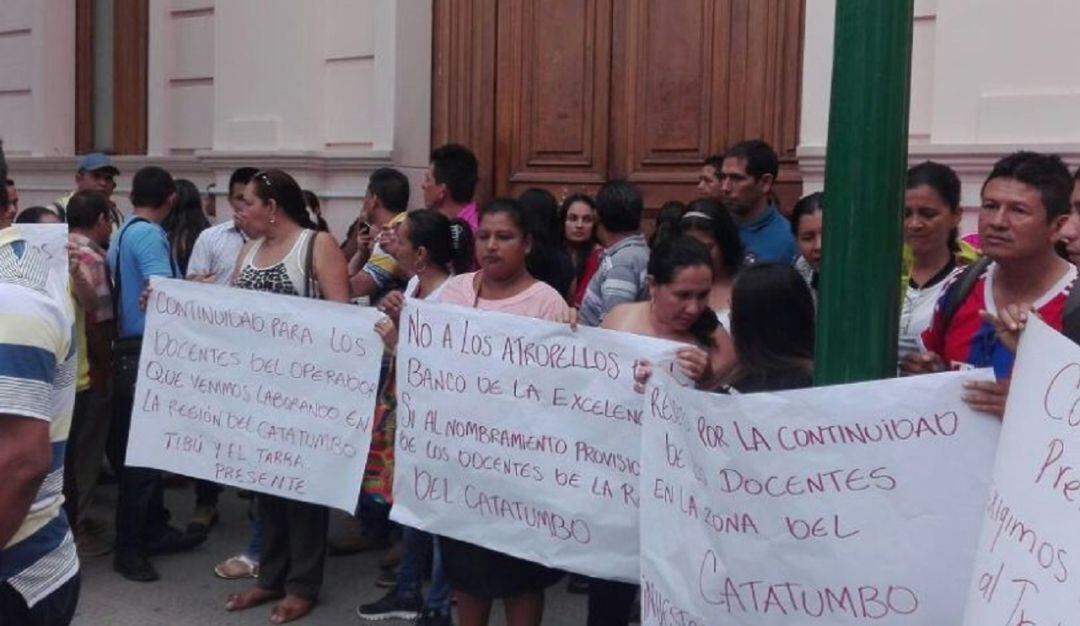 CONTINUIDAD PARA LOS
DOCENTES DEL OPERADOR
QUE VENIMOS LABORANDO EN
LA REGIÓN DEL CATATUMBO
TIBÚ Y EL TARRA
PRESENTE
NO A LOS ATROPELLOS
BANCO DE LA EXCELEN
SI AL NOMBRAMIENTO PROVISIO
DE LOS DOCENTES DE LA R
DEL CATATUMBO
POR LA CONTINUIDAD
DOCENTES
EN LA ZONA DEL
CATATUMBO
Pre
xigimos
al